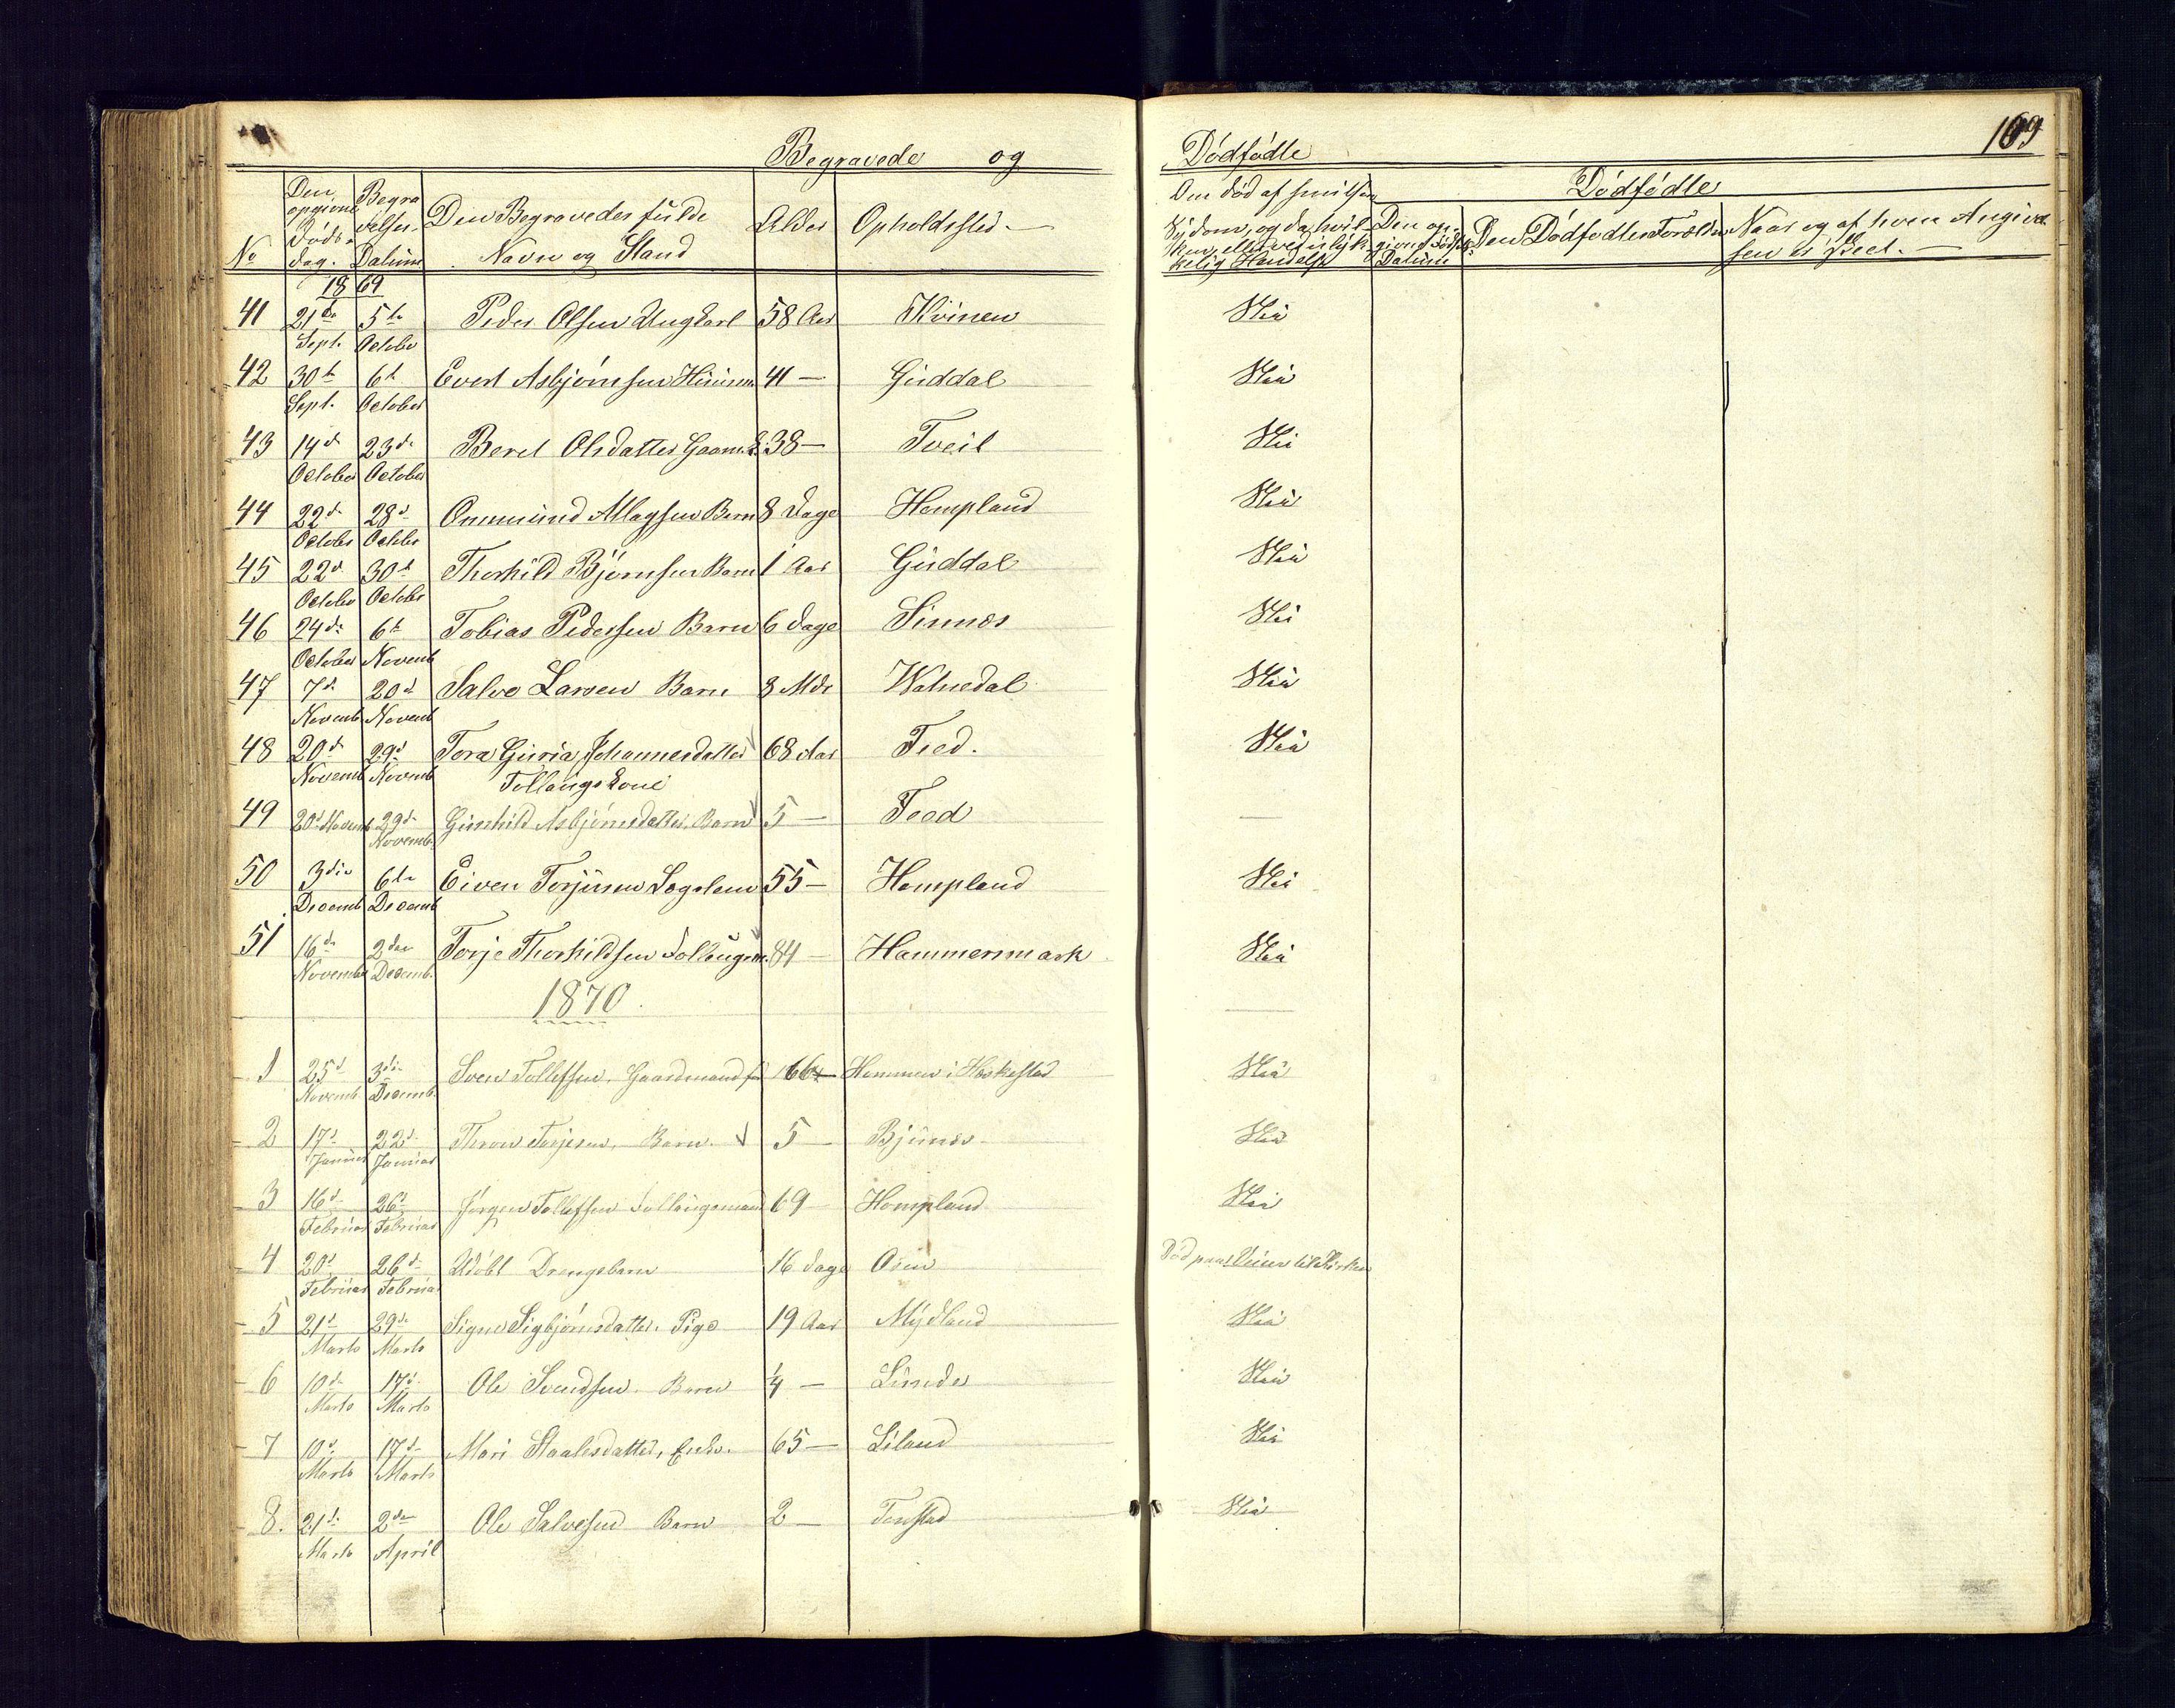 Begravede og
Dödfödte
169
No
Den opgivne Döds-dag.
Begravelses-Datum
Den Begravedes fulde Navn og Stand
Alder
Opholdssted.
Om död af smitsom Sÿdom, og da hvil-ken, eller ved ulÿk-kelig Hendelse
Dödfödte
Den op-givne Födsels-Datum
Den Dödfödtes Forældre
Naar og af hvem Angivel-sen er skeet.
1869
41 21de Sept. 5te October Peder Olsen Ungkarl 58 Aar Kvinen Nei
42 30te Sept. 6te October Evert Asbjörnsen 41 — Guddal Nei
43 14de October 23de October Beret Olsdatter Gaardm.K. 38 — Tveit Nei
44 22de October 28de October Ommund Atlagsen Barn 8 Dage Hompland Nei
45 22de October 30te October Thorkild Björnsen Barn 1 Aar Guddal Nei
46 24de October 6te Novemb Tobias Pedersen Barn 6 Dage Sinnes Nei
47 7de Novemb 20de Novemb Salve Larsen Barn 8 Mdr Watnedal Nei
48 20de Novemb 29de Novemb Tora Guria Johannesdatter Follaugskone 68 Aar Tied. Nei
49 20de Novemb 29de Novemb. Gunhild Asbjörnsdatter, Barn 5 — Teod —
50 3die Decemb 6te Decemb Eiven Torjusen Lægdslem 55 — Hompland Nei
51 16de Novembr 2den Decemb. Torje Thorkildsen Follaugsm. 84 — Hammermark Nei
1870.
1 25de Novemb. 3die Decemb. Sven Tollefsen, Gaardmand 66 — Hommen i Heskestad Nei
2 17de Januar 22de Januar Thron Torjesen, Barn. 5 — Bjunes Nei
3 16de Februar 26de Februar Jörgen Tollefsen Follaugsmand 69 — Hompland Nei
4 20de Februar 26de Februar Udöbt Drengebarn 16 Dage Osen Död paa Veien til Kirken
5 21de Marts 29de Marts Signe Sigbjörnsdatter. Pige 19 Aar Mÿdland Nei
6 10de Marts 17de Marts Ole Svendsen. Barn 1/4 — Lunde Nei
7 10de Marts 17de Marts Mari Staalesdatter, Enke. 65 — Liland Nei
8. 21de Marts 2den April Ole Salvesen Barn 2 — Tonstad Nei